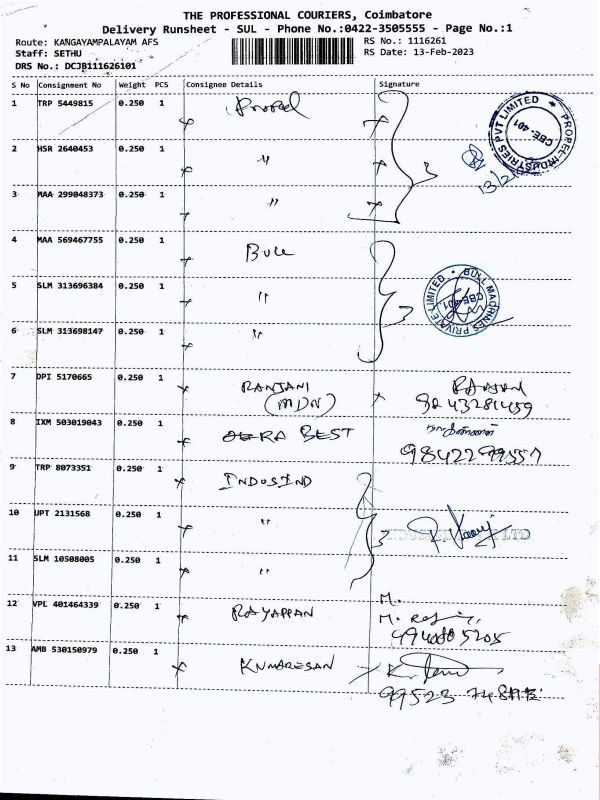 THE PROFESSIONAL COURIERS, Coimbatore
Delivery Runsheet - SUL - Phone No.:0422-3505555 - Page No.:1
Route: KANGAYAMPALAYAM AFS
RS No.: 1116261
Staff: SETHU
RS Date: 13-Feb-2023
DRS No.: DCJB111626101
S No Consignment No Weight PCS Consignee Details Signature
1 TRP 5449815 0.250 1 Propel
PROPEL INDUSTRIES PVT LIMITED
CBE-401
2 HSR 2640453 0.250 1 "
3
3 MAA 299048373 0.250 1 "
4 MAA 569467755 0.250 1 Bull
5 SLM 313696384 0.250 1 "
3
BULL MACHINES PRIVATE LIMITED
CBE-401
6 SLM 313698147 0.250 1 "
7 DPI 5170665 0.250 1 RANJANI
(MDN)
8 IXM 503019043 0.250 1 RA BEST
9 TRP 8073351 0.250 1 INDUSIND
10 UPT 2131568 0.250 1 "
3
11 SLM 10508005 0.250 1 "
12 VPL 401464339 0.250 1 RAYAPPAN
M.
13 AMB 530150979 0.250 1 KUMARESAN